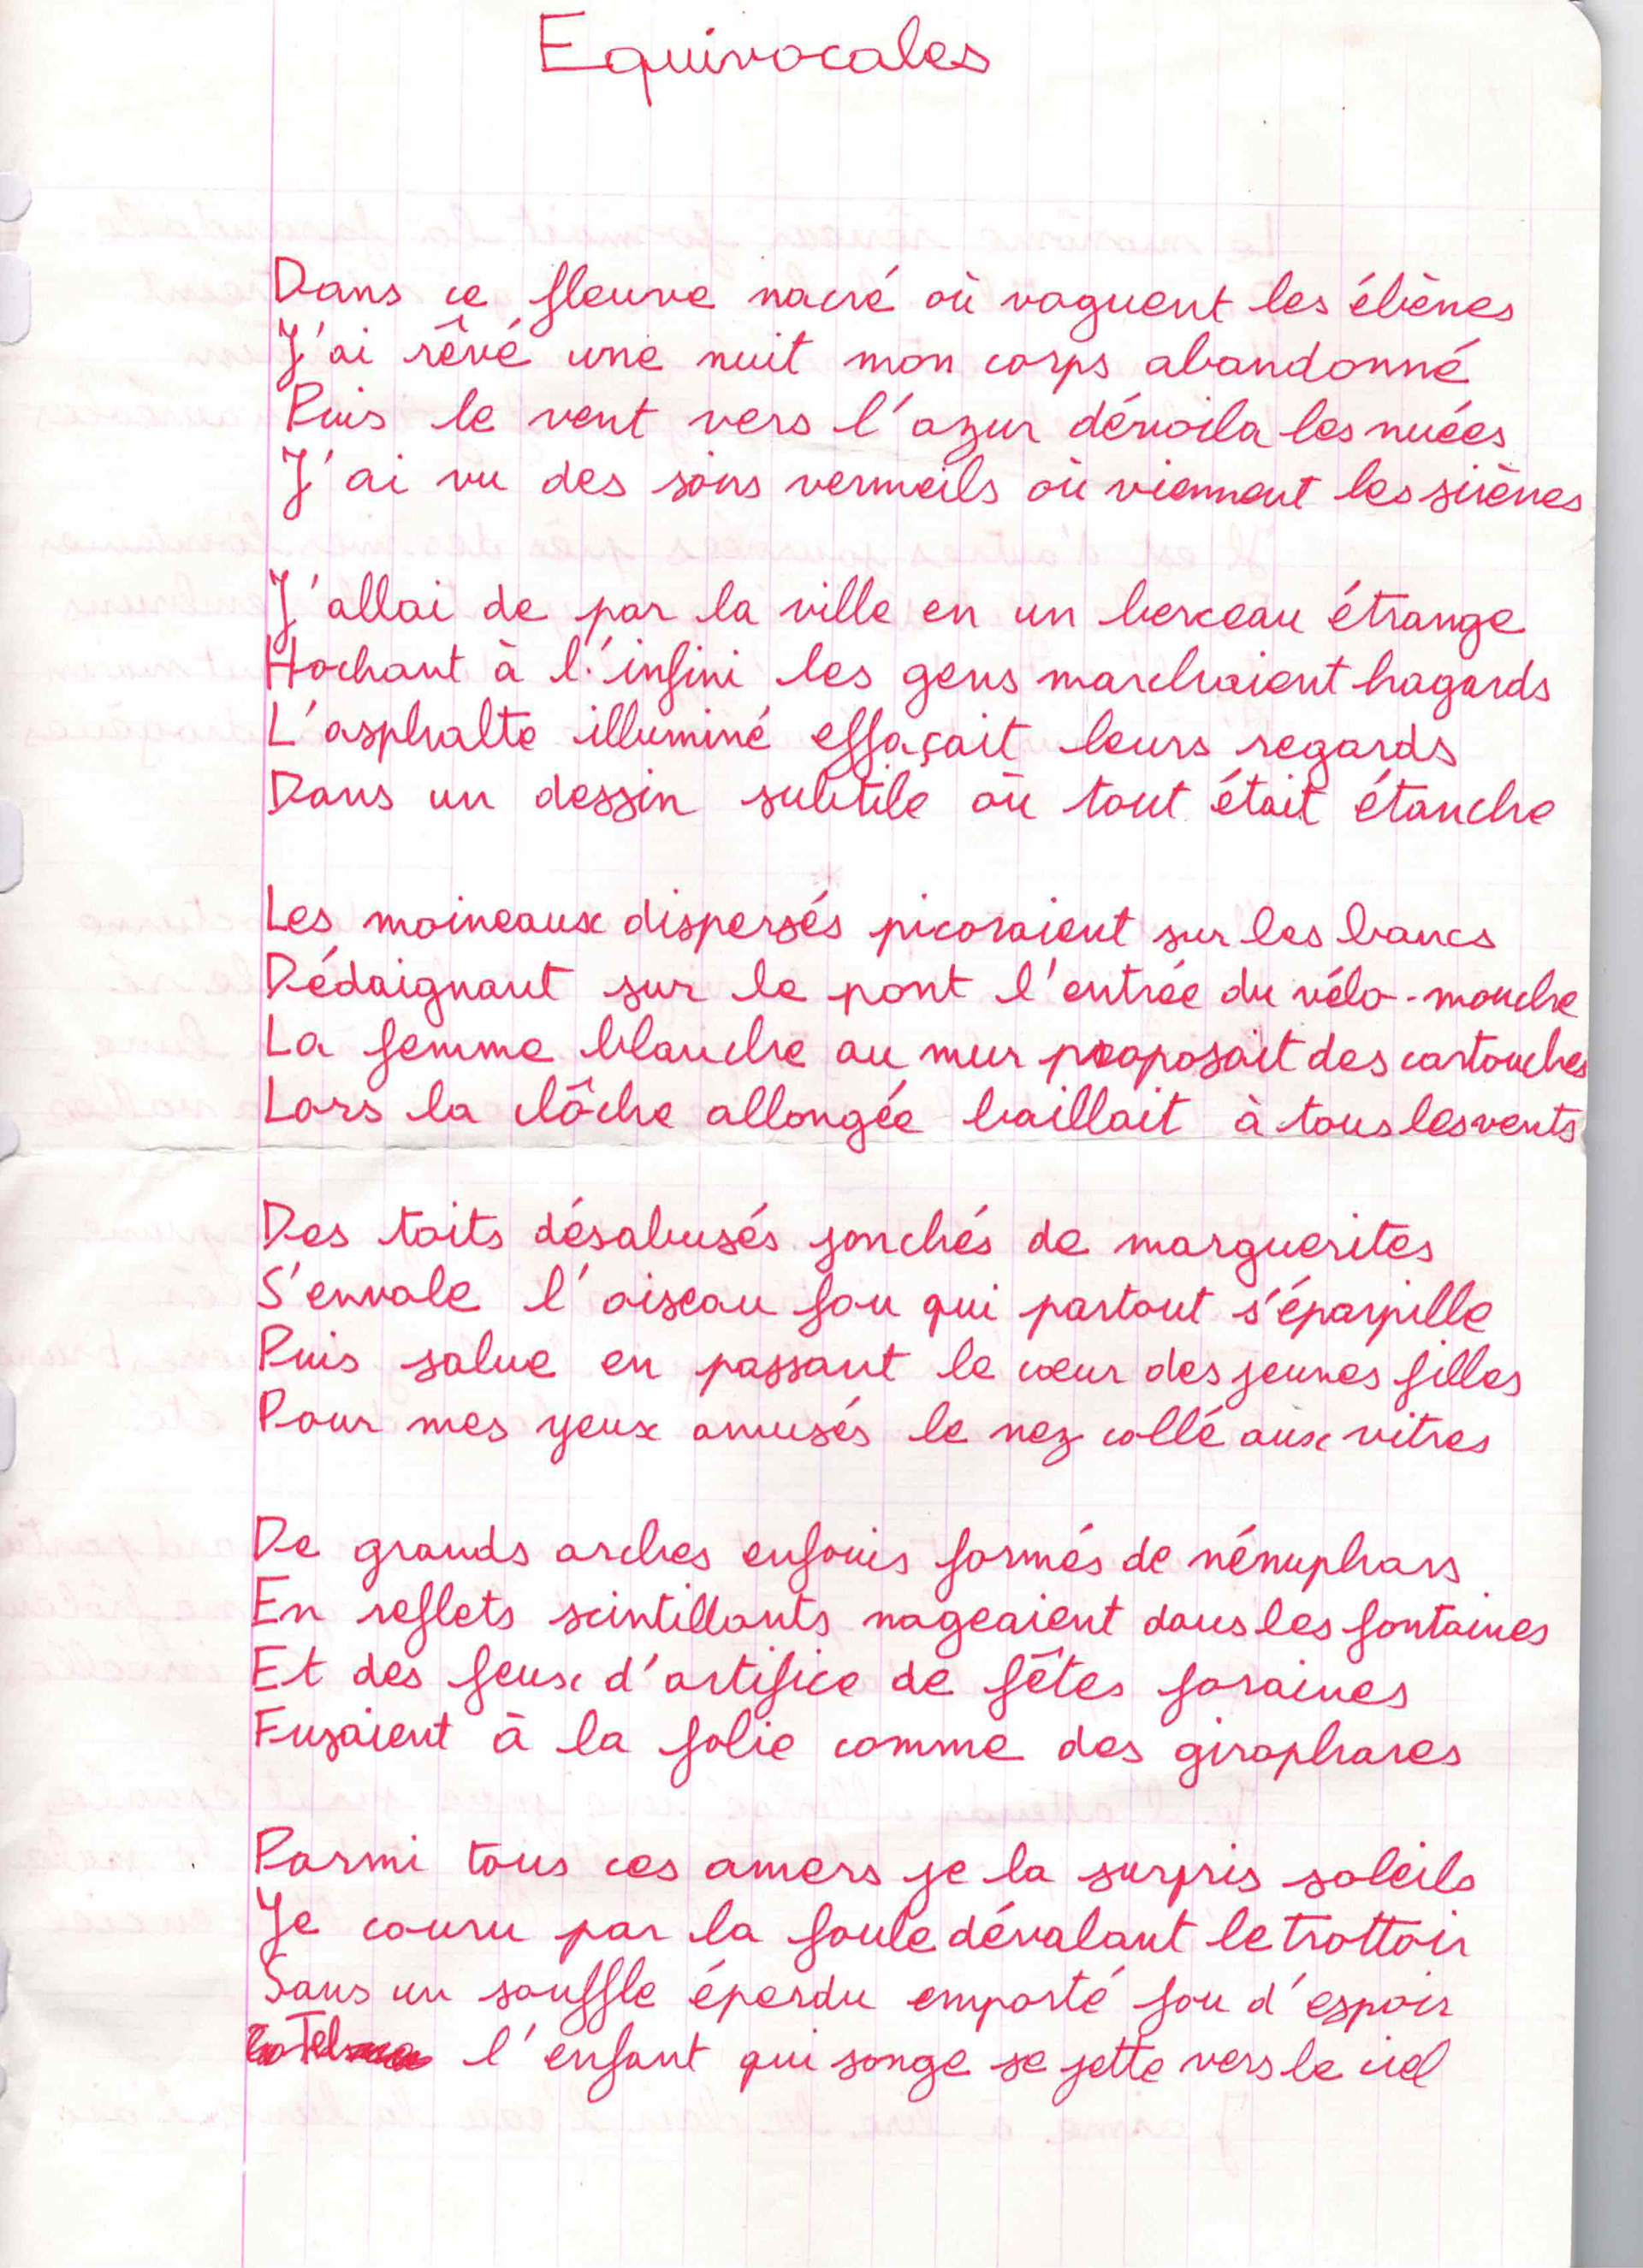 Equivocales
Dans ce fleuve nacré où vaguent les ébènes
J'ai rêvé une nuit mon corps abandonné
Puis le vent vers l'azur dévoila les nuées
J'ai vu des soirs vermeils où viennent les sirènes
J'allai de par la ville en un berceau étrange
Hochant à l'infini les gens marchaient hagards
L'asphalte illuminé effaçait leurs regards
Dans un dessin subtile où tout était étanche
Les moineaux dispersés picoraient sur les bancs
Dédaignant sur le pont l'entrée du vélo-mouche
La femme blanche au mur proposait des cartouches
Lors la clôche allongée baillait à tous les vents
Des toits désabusés jonchés de marguerites
S'envole l'oiseau fou qui partout s'éparpille
Puis salue en passant le cœur des jeunes filles
Pour mes yeux amusés le nez collé aux vitres
De grands arches enfouis formés de nénuphars
En reflets scintillants nageaient dans les fontaines
Et des feux d'artifice de fêtes foraines
Fusaient à la folie comme des girophares
Parmi tous ces amers je la surpris soleils
Je couru par la foule dévalant le trottoir
Sans un souffle éperdu emporté fou d'espoir
Tel l'enfant qui songe se jette vers le ciel